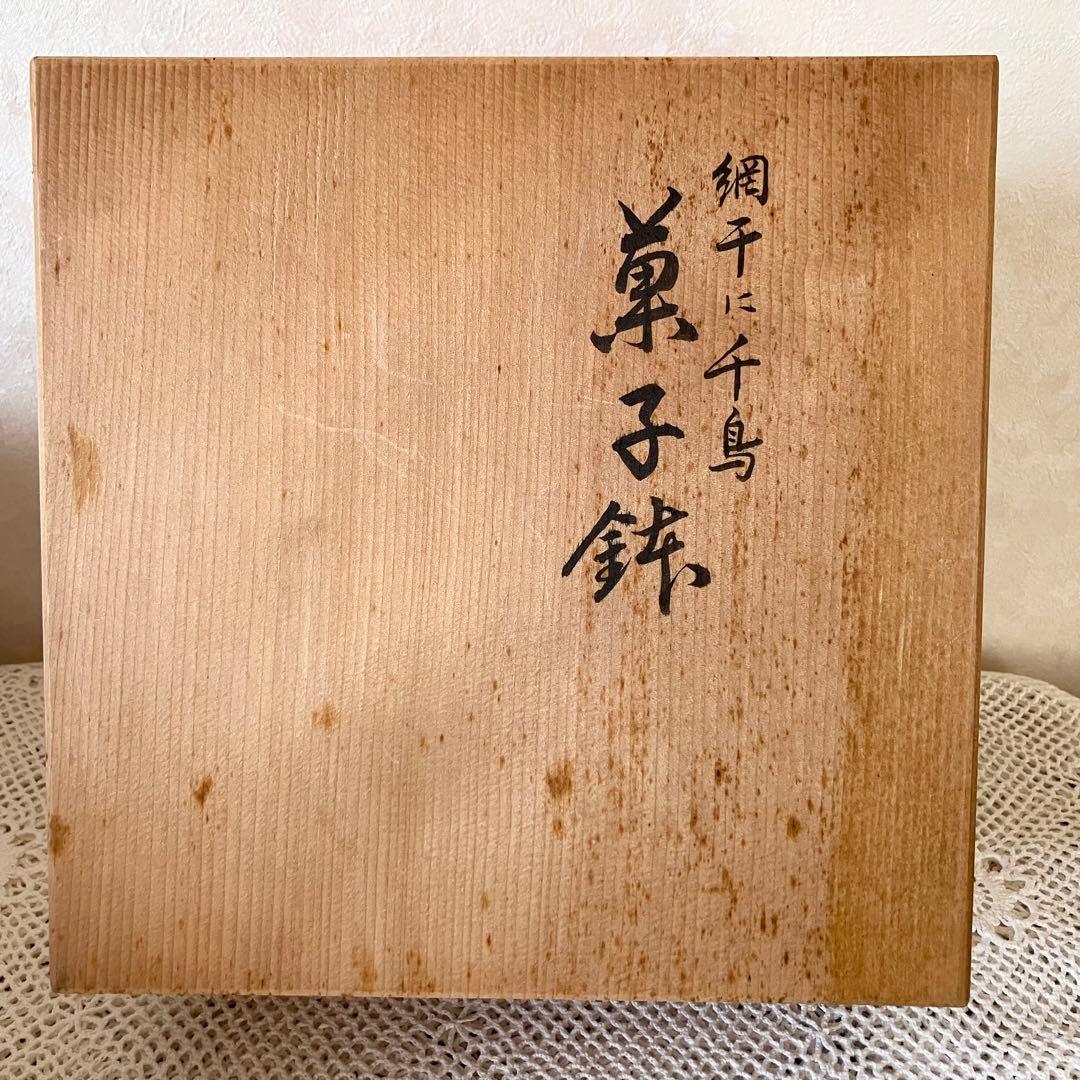 網干に千鳥
菓子鉢